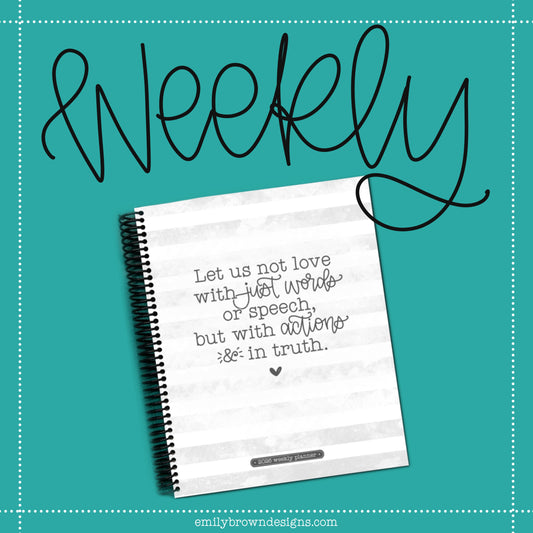 Weekly
Let us not love
with just words
or speech,
but with actions
& in truth.
• 2026 weekly planner •
emilybrowndesigns.com